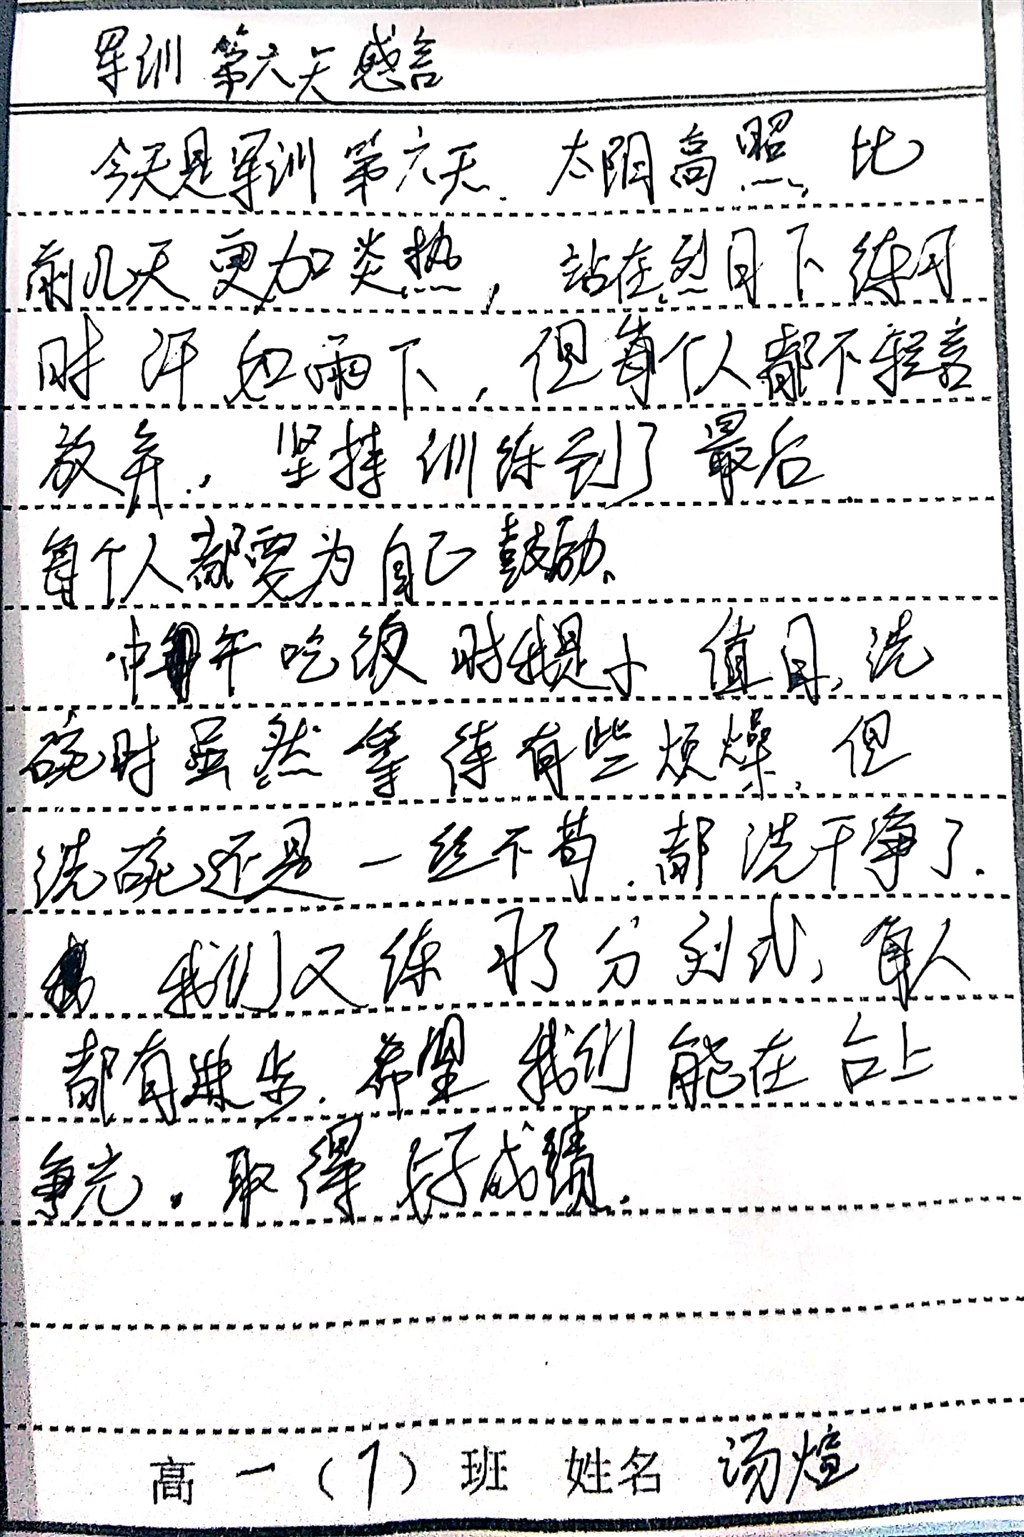 军训第六天感言
今天是军训第六天.太阳高照,比
前几天更加炎热,站在烈日下练习
时汗如雨下,但每个人都不轻言
放弃.,坚持训练到了最后
每个人都要为自己鼓励.
中午吃饭时我是小值日,洗
碗时虽然等待有些烦燥.但
洗碗还是一丝不苟.都洗干净了.
我们又练习了分列式,每人
都有进步.希望我们能在台上
争光.取得好成绩.
高一(1)班 姓名 汤煊